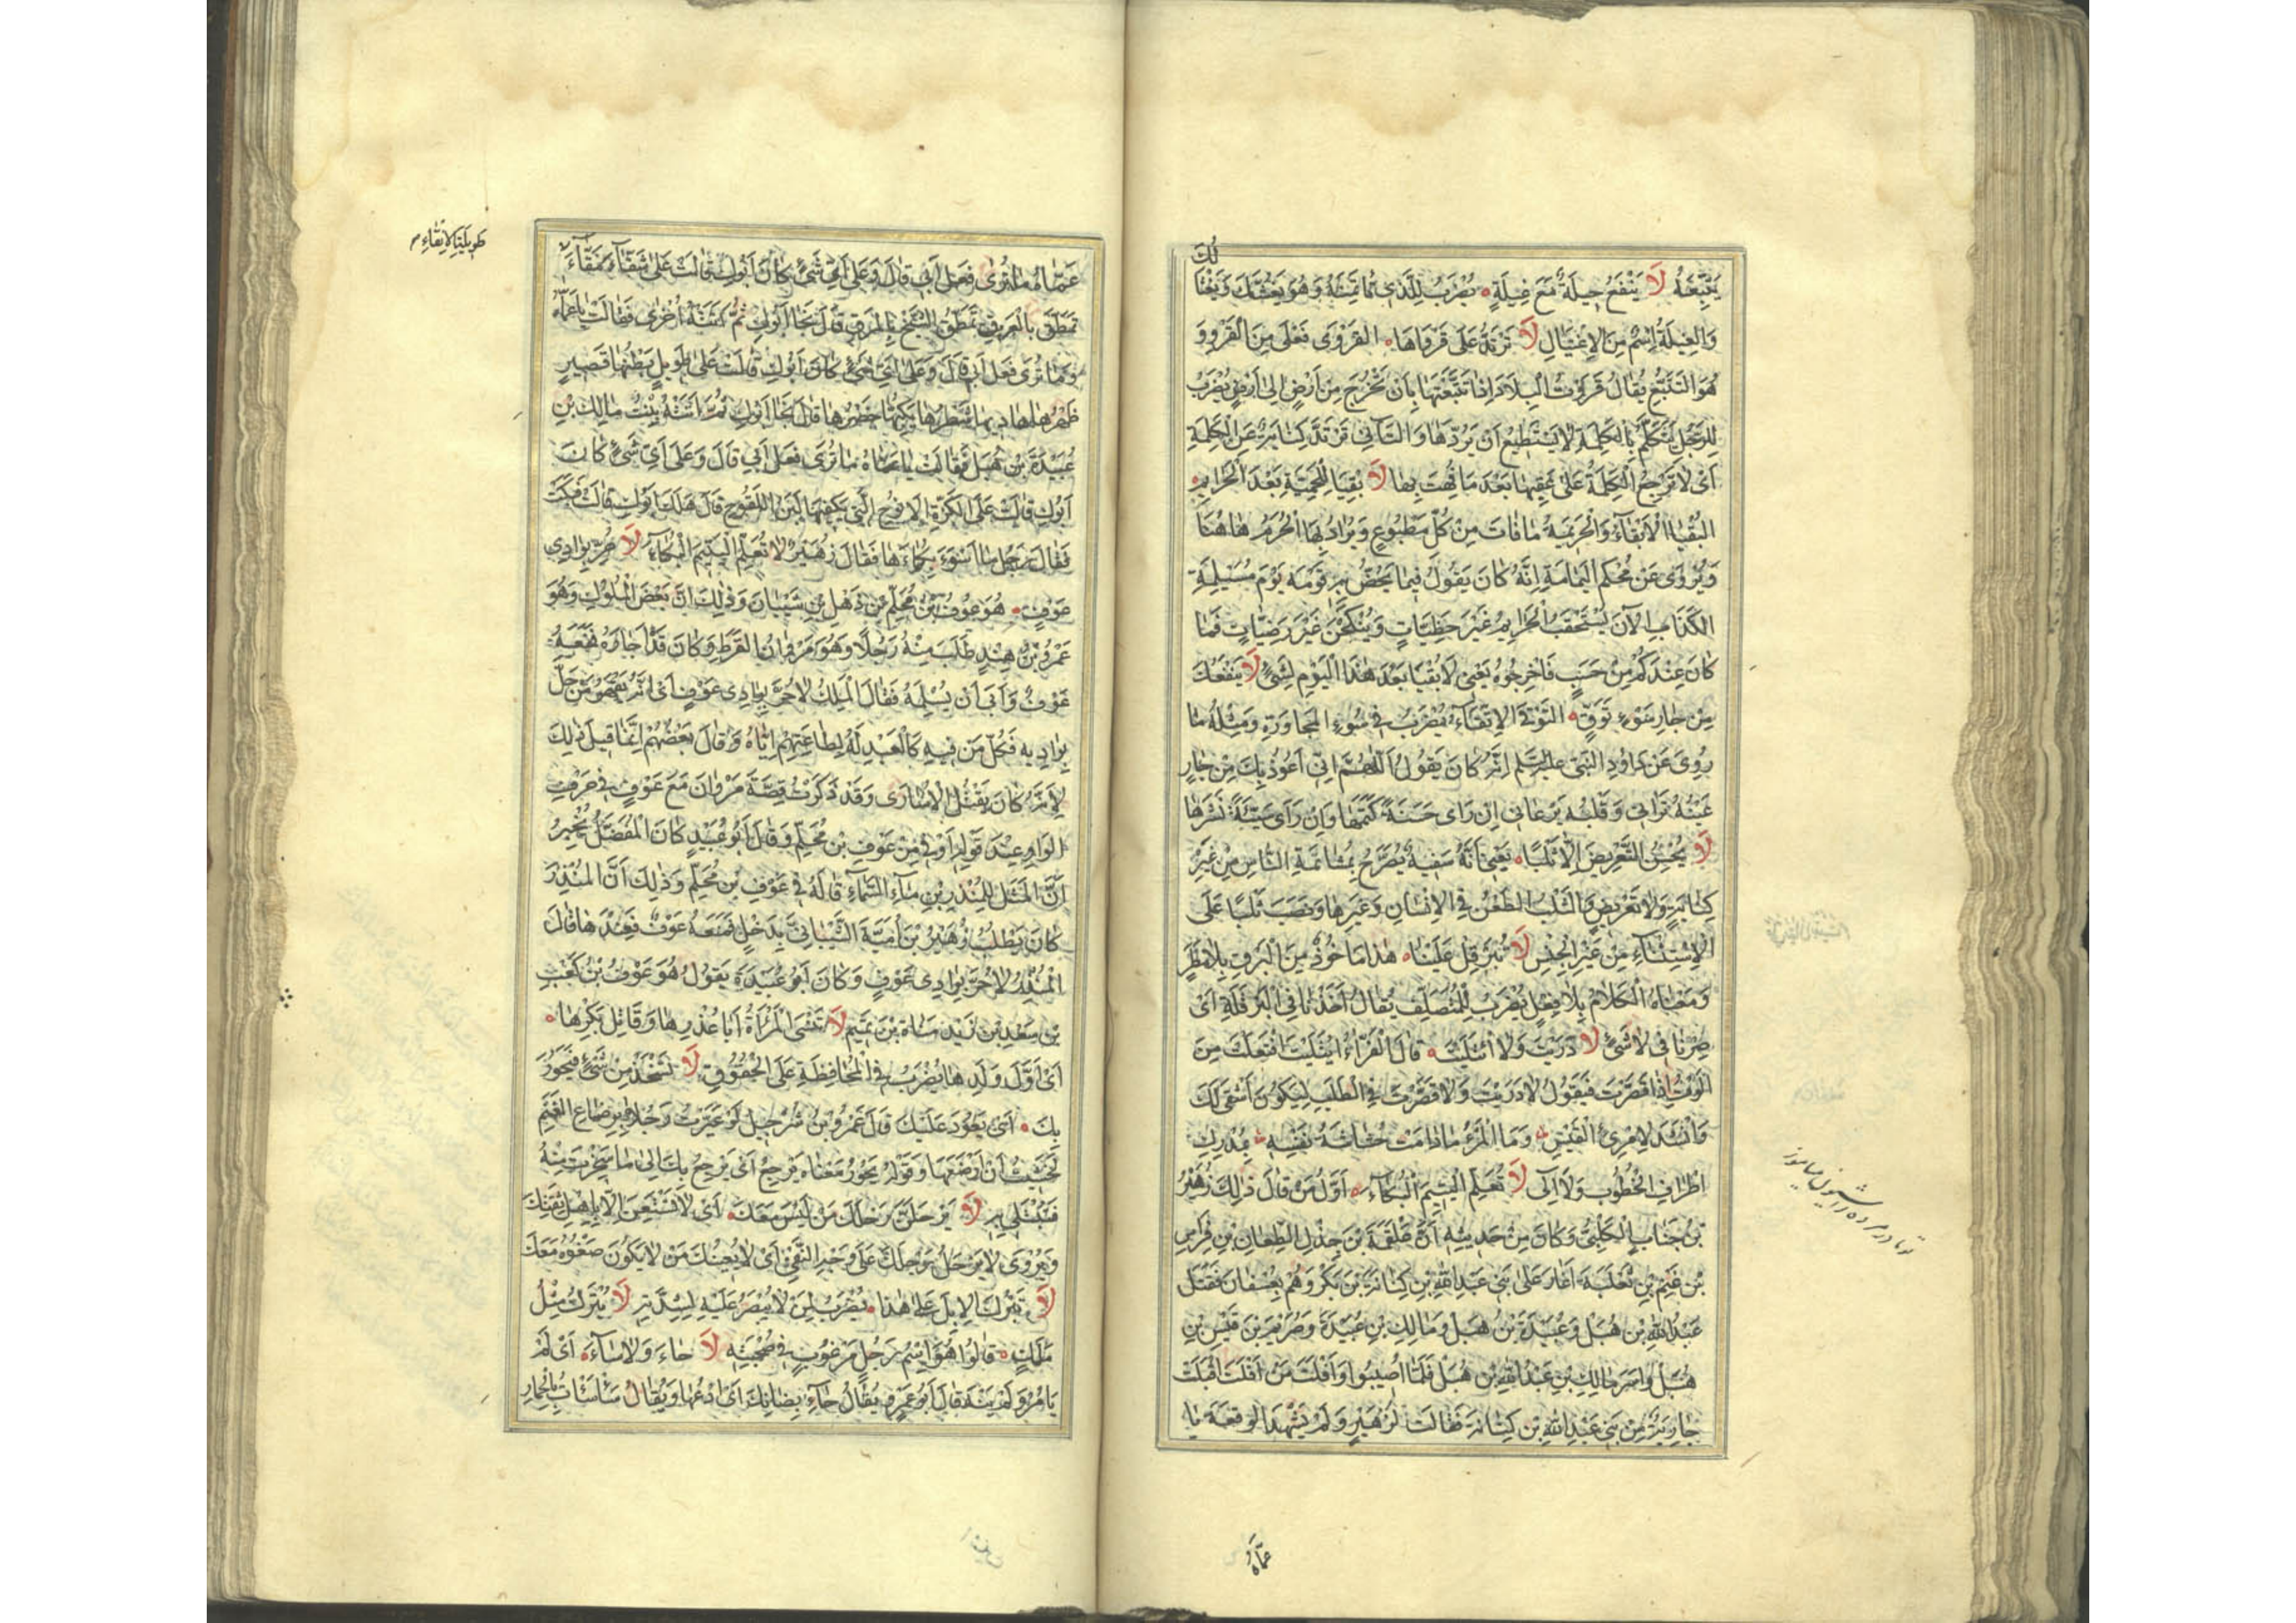 لَكَ
يَتْبَعُهُ لَا يَنْفَعُ حِيلَةٌ مَعَ غِيلَةٍ يُضْرَبُ لِلَّذِي تَأْتَمِنُهُ وَهُوَ يَغُشُّكَ وَيَغْتَا
وَالْغِيلَةُ اِسْمٌ مِنَ الْاِغْتِيَالِ لَا تَرْتَدُّ عَلَى قَرْوَاهَا القَرْوَى فَعْلَى مِنَ الْقَرْوِ وَ
هُوَ التَّتَبُّعُ يُقَالُ قَرَوْتُ الْبِلَادَ اِذَا تَتَبَّعْتَهَا بِاَنْ تَخْرُجَ مِنْ اَرْضٍ اِلَى اَرْضٍ يُضْرَبُ
لِلرَّجُلِ يَتَكَلَّمُ بِالْكَلِمَةِ لَا يَسْتَطِيعُ اَنْ يَرُدَّهَا وَالتَّاءُ فِي تَرْتَدُّ كِنَايَةٌ عَنِ الْكَلِمَةِ
اَىْ لَا تَرْجِعُ الْكَلِمَةُ عَلَى عَقِبِهَا بَعْدَ مَا فُهْتَ بِهَا لَا بُقْيَا لِلْحَمِيَّةِ بَعْدَ الْحَرَايِمِ
البُقْيَا الْاِبْقَاءُ وَالْحَرِيمَةُ مَا فَاتَ مِنْ كُلِّ مَطْبُوعٍ وَيُرَادُ بِهَا الْحُرَمُ هَاهُنَا
وَيُرْوَى عَنْ مُحَكَّمِ الْيَمَامَةِ اِنَّهُ كَانَ يَقُولُ فِيمَا يَحُضُّ بِهِ قَوْمَهُ يَوْمَ مُسَيْلِمَةَ
الكَذَّابِ الْآنَ يُسْتَحْقَبُ الْحَرَايِمُ غَيْرَ حَظِيَّاتٍ وَيُنْكَحْنَ غَيْرَ رَضِيَّاتٍ فَمَا
كَانَ عِنْدَكُمْ مِنْ حَسَبٍ فَاَخْرِجُوهُ يَعْنِى لَا بُقْيَا بَعْدَ هٰذَا الْيَوْمِ لِشَىْءٍ لَا يَنْفَعُكَ
مِنْ جَارِ سَوْءٍ تَوَقٍّ التَّوَقِّى الْاِتِّقَاءُ يُضْرَبُ فِى سُوءِ الْمُجَاوَرَةِ وَمِثْلُهُ مَا
رُوِىَ عَنْ دَاوُدَ النَّبِىِّ عليه السلم اِنَّهُ كَانَ يَقُولُ اَللّٰهُمَّ اِنِّى اَعُوذُ بِكَ مِنْ جَارٍ
عَيْنُهُ تَرَانِى وَقَلْبُهُ يَرْعَانِى اِنْ رَاَى حَسَنَةً كَتَمَهَا وَاِنْ رَاَى سَيِّئَةً نَشَرَهَا
لَا يُحْسِنُ التَّعْرِيضَ اِلَّا ثَلْبًا يَعْنِى اَنَّهُ سَفِيهٌ يُصَرِّحُ بِمُشَاتَمَةِ النَّاسِ مِنْ غَيْرِ
كِنَايَةٍ وَلَا تَعْرِيضٍ وَالثَّلْبُ الطَّعْنُ فِى الْاِنْسَانِ وَغَيْرِهَا وَنَصَبَ ثَلْبًا عَلَى
الْاِسْتِثْنَاءِ مِنْ غَيْرِ الْجِنْسِ لَا تُبَرْقِلْ عَلَيْنَا هٰذَا مَاخُوذٌ مِنَ الْبَرْقِ بِلَا مَطَرٍ
وَمَعْنَاهُ الْكَلَامُ بِلَا فِعْلٍ يُضْرَبُ لِلْمُتَصَلِّفِ يُقَالُ اَخَذْنَا فِى الْبَرْقَلَةِ اَىْ
صِرْنَا فِى لَا شَىْءٍ لَا دَرَيْتَ وَلَا ائْتَلَيْتَ قَالَ الْفَرَّاءُ ائْتَلَيْتَ افْتَعَلْتَ مِنْ
اَلَوْتُ اِذَا قَصَّرْتَ فَيَقُولُ لَا دَرَيْتَ وَلَا قَصَّرْتَ فِى الطَّلَبِ لِيَكُونَ اَشْقَى لَكَ
وَاَنْشَدَ لِامْرِئِ الْقَيْسِ وَمَا الْمَرْءُ مَا دَامَتْ حُشَاشَةُ نَفْسِهِ بِمُدْرِكِ
اَطْرَافِ الْخُطُوبِ وَلَا اٰلِى لَا تُعَلِّمِ الْيَتِيمَ الْبُكَاءَ اَوَّلُ مَنْ قَالَ ذٰلِكَ زُهَيْرُ
بْنُ جَنَابٍ الْكَلْبِىُّ وَكَانَ مِنْ حَدِيثِهِ اَنَّ عَلْقَمَةَ بْنَ جِذْلِ الطِّعَانِ بْنِ فِرَاسِ
بْنِ غَنْمِ بْنِ ثَعْلَبَةَ اَغَارَ عَلَى بَنِى عَبْدِ اللّٰهِ بْنِ كِنَانَةَ بْنِ بَكْرٍ وَهُمْ بِعُسْفَانَ فَقَتَلَ
عَبْدَ اللّٰهِ بْنَ هُبَلَ وَعُبَيْدَةَ بْنَ هُبَلَ وَمَالِكَ بْنَ عُبَيْدَةَ وَصَرِيمَ بْنَ قَيْسِ بْنِ
هُبَلَ وَاَسَرَ مَالِكَ بْنَ عَبْدِ اللّٰهِ بْنِ هُبَلَ فَلَمَّا اُصِيبُوا وَاَفْلَتَ مَنْ اَفْلَتَ اَقْبَلَتْ
جَارِيَةٌ مِنْ بَنِى عَبْدِ اللّٰهِ بْنِ كِنَانَةَ فَقَالَتْ لِزُهَيْرٍ وَلَمْ يَشْهَدِ الْوَقْعَةَ يَا
عَمَّاهُ
عَمَّاهُ مَا تُرَى فَعَلَ اَبِى قَالَ وَعَلَى اَىِّ شَىْءٍ كَانَ اَبُوكِ قَالَتْ عَلَى شَقَّاءَ مَقَّاءَ
طَوِيلَةِ الْاَنْقَاءِ
تَمَطَّقُ بِالْعَرَقِ تَمَطُّقَ الشَّيْخِ بِالْمَرَقِ قَالَ نَجَا اَبُوكِ ثُمَّ اَتَتْهُ اُخْرَى فَقَالَتْ يَا عَمَّاهُ
وَمَا تُرَى فَعَلَ اَبِى قَالَ وَعَلَى اَىِّ شَىْءٍ كَانَ اَبُوكِ قَالَتْ عَلَى طَوِيلٍ بَطْنُهَا قَصِيرٍ
ظَهْرُهَا هَادِيهَا شَطْرُهَا يَكُبُّهَا حُضْرُهَا قَالَ نَجَا اَبُوكِ ثُمَّ اَتَتْهُ بِنْتُ مَالِكِ بْنِ
عُبَيْدَةَ بْنِ هُبَلَ فَقَالَتْ يَا عَمَّاهُ مَا تُرَى فَعَلَ اَبِى قَالَ وَعَلَى اَىِّ شَىْءٍ كَانَ
اَبُوكِ قَالَتْ عَلَى الْكَزَّةِ الْاَنُوحِ الَّتِى يَكْفِيهَا لَبَنُ اللَّقُوحِ قَالَ هَلَكَ اَبُوكِ قَالَتْ فَبَكَتْ
فَقَالَ رَجُلٌ مَا اَسْوَءَ بُكَاءَهَا فَقَالَ زُهَيْرٌ لَا تُعَلِّمِ الْيَتِيمَ الْبُكَاءَ لَا حُرَّ بِوَادِى
عَوْفٍ هُوَ عَوْفُ بْنُ مُحَلِّمِ بْنِ ذُهْلِ بْنِ شَيْبَانَ وَذٰلِكَ اَنَّ بَعْضَ الْمُلُوكِ وَهُوَ
عَمْرُو بْنُ هِنْدٍ طَلَبَ مِنْهُ رَجُلًا وَهُوَ مَرْوَانُ الْقَرَظِ وَكَانَ قَدْ اَجَارَهُ فَمَنَعَهُ
عَوْفٌ وَاَبَى اَنْ يُسْلِمَهُ فَقَالَ الْمَلِكُ لَا حُرَّ بِوَادِى عَوْفٍ اَىْ اَنَّهُ يَقْهَرُ مَنْ حَلَّ
بِوَادِيهِ فَكُلُّ مَنْ فِيهِ كَالْعَبْدِ لَهُ لِطَاعَتِهِمْ اِيَّاهُ وَقَالَ بَعْضُهُمْ اِنَّمَا قِيلَ ذٰلِكَ
لِاَنَّهُ كَانَ يَقْتُلُ الْاُسَارَى وَقَدْ ذَكَرْتُ قِصَّةَ مَرْوَانَ مَعَ عَوْفٍ فِى حَرْفِ
الوَاوِ عِنْدَ قَوْلِهِ اَوْفَى مِنْ عَوْفِ بْنِ مُحَلِّمٍ وَقَالَ اَبُو عُبَيْدٍ كَانَ الْمُفَضَّلُ يُخْبِرُ
اَنَّ الْمَثَلَ لِلْمُنْذِرِ بْنِ مَاءِ السَّمَاءِ قَالَهُ فِى عَوْفِ بْنِ مُحَلِّمٍ وَذٰلِكَ اَنَّ الْمُنْذِرَ
كَانَ يَطْلُبُ زُهَيْرَ بْنَ اُمَيَّةَ الشَّيْبَانِىَّ بِذَحْلٍ فَمَنَعَهُ عَوْفٌ فَعِنْدَهَا قَالَ
الْمُنْذِرُ لَا حُرَّ بِوَادِى عَوْفٍ وَكَانَ اَبُو عُبَيْدَةَ يَقُولُ هُوَ عَوْفُ بْنُ كَعْبِ
بْنِ سَعْدِ بْنِ زَيْدِ مَنَاةَ بْنِ تَمِيمٍ لَا تَنْسَى الْمَرْأَةُ اَبَا عُذْرِهَا وَقَاتِلَ بِكْرِهَا
اَىْ اَوَّلَ وَلَدِهَا يُضْرَبُ فِى الْمُحَافِظَةِ عَلَى الْحُقُوقِ لَا تَسْخَرْ مِنْ شَىْءٍ فَيَحُورَ
بِكَ اَىْ يَعُودَ عَلَيْكَ قَالَ عَمْرُو بْنُ شُرَحْبِيلَ لَوْ عَيَّرْتُ رَجُلًا بِرِضَاعِ الْغَنَمِ
لَخَشِيتُ اَنْ اَرْضَعَهَا وَقَوْلُهُ يَحُورُ مَعْنَاهُ يَرْجِعُ اَىْ يَرْجِعُ بِكَ اِلَى مَا سَخِرْتَ مِنْهُ
فَتُبْتَلَى بِهِ لَا يَرْحَلَنَّ رَحْلَكَ مَنْ لَيْسَ مَعَكَ اَىْ لَا تَسْتَعِنَنَّ اِلَّا بِاَهْلِ ثِقَتِكَ
وَيُرْوَى لَا يَرْحَلُ رَحْلَكَ عَلَى وَجْهِ النَّفْىِ اَىْ لَا يُعِينُكَ مَنْ لَا يَكُونُ صَغْوُهُ مَعَكَ
لَا تَبْرُكُ الْاِبِلُ عَلَى هٰذَا يُضْرَبُ لِمَنْ لَا يُصْبَرُ عَلَيْهِ لِشِدَّتِهِ لَا يُتْرَكُ مِثْلُ
مَالِكٍ قَالُوا هُوَ اِسْمُ رَجُلٍ مَرْغُوبٍ فِى صُحْبَتِهِ لَا حَاءَ وَلَا سَاءَ اَىْ لَمْ
يَامُرْ وَلَمْ يَنْهَ قَالَ اَبُو عَمْرٍو يُقَالُ حَاءِ بِضَانِكَ اَىْ ادْعُهَا وَيُقَالُ سَأْسَأْتُ بِالْحِمَارِ